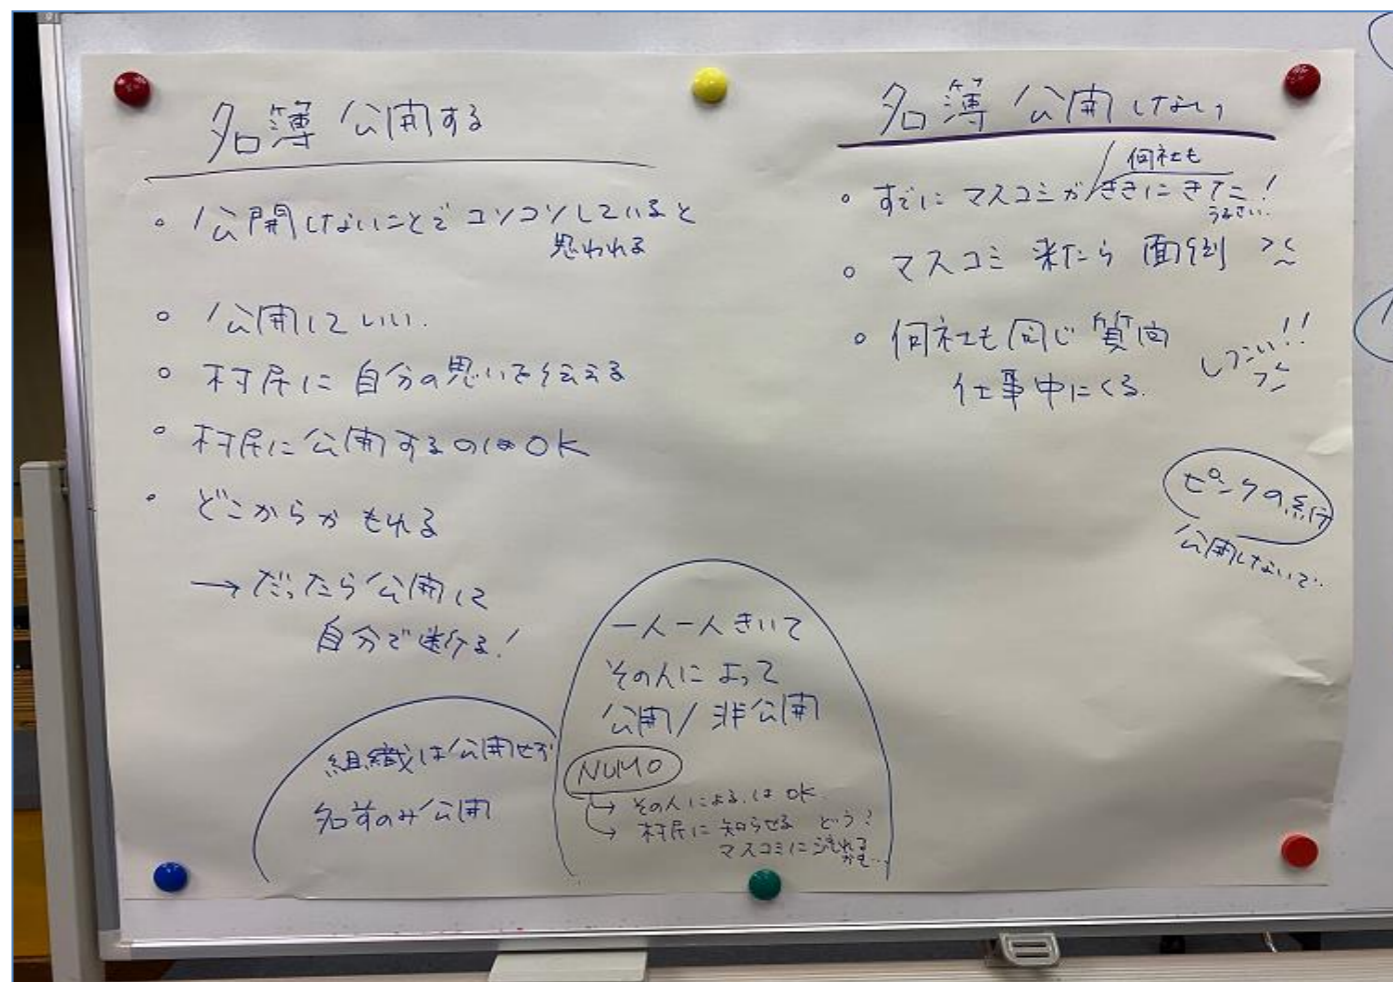 名簿 公開する
・公開しないことでコソコソしていると
思われる
・公開していい.
・村民に自分の思いを伝える
・村民に公開するのはOK
・どこからか もれる
→だったら公開して
自分で避ける!
組織は公開せず
名前のみ公開
一人一人きいて
その人によって
公開/非公開
NUMO
→その人による.はOK.
→村民に知らせる どう?
マスコミに流れる
かも…
名簿 公開しない
何社も
・すでに マスコミが ききにきてた!
うるさい..
・マスコミ 来たら 面倒
・何社も同じ質問
仕事中にくる.
しつこい!!
ピンクの
公開しないで..